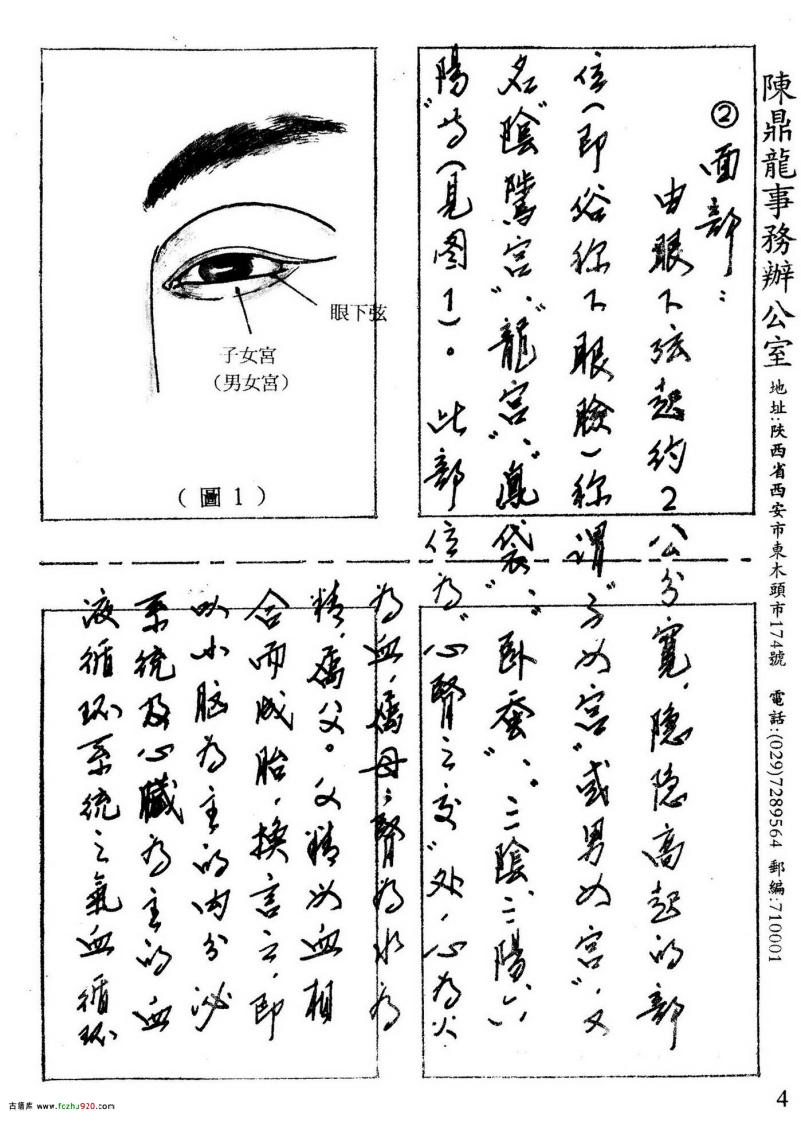 陳鼎龍事務辦公室 地址:陝西省西安市東木頭市174號 電話:(029)7289564 郵編:710001
②面部:
由眼下弦起約2公分寬,隐隐高起的部
位(即俗称下眼瞼)称谓“子女宫”或男女宫”,又
名“陰騭宫”、“龍宫”、“鳳袋”、“卧蚕”、三陰、三陽、六
陽”等(見图1)。此部位為“心腎之交”处,心為火
為血,属母;腎為水為
精,属父。父精母血相
合而成胎,换言之,即
以小脑為主的内分泌
系统及心臟為主的血
液循环系统之氣血循环
眼下弦
子女宮
(男女宮)
(圖1)
4
古籍库 www.fczhu920.com